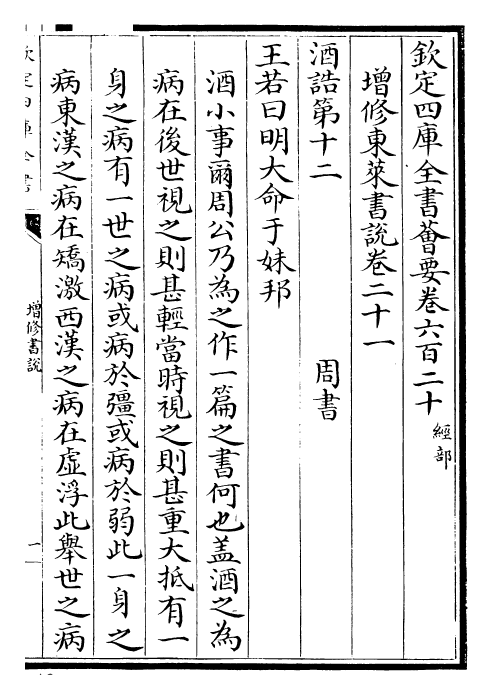 欽定四庫全書薈要卷六百二十 經部
增修東萊書說卷二十一
酒誥第十二 周書
王若曰明大命于妹邦
酒小事爾周公乃為之作一篇之書何也盖酒之為
病在後世視之則甚輕當時視之則甚重大抵有一
身之病有一世之病或病於彊或病於弱此一身之
病東漢之病在矯激西漢之病在虛浮此舉世之病
欽定四庫全書
增修書說
一